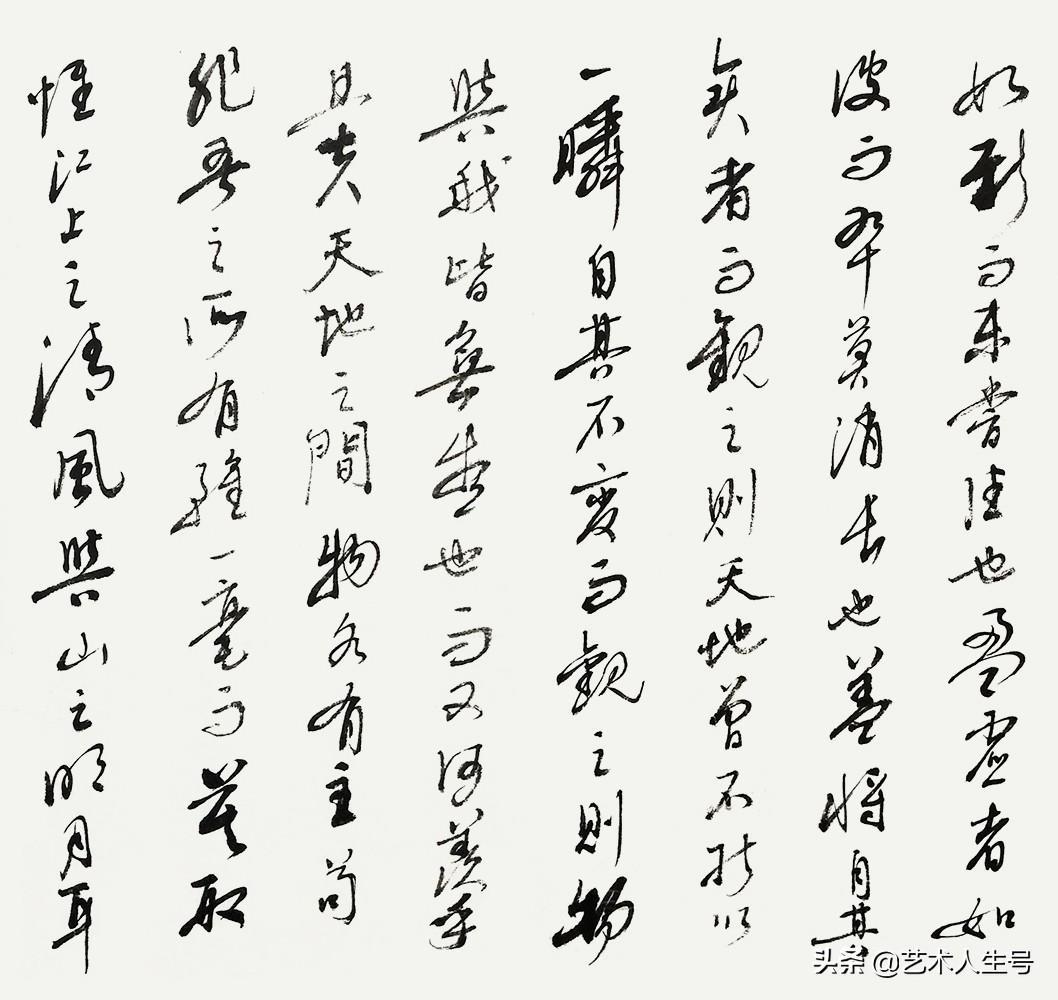 如斯而未嘗往也盈虛者如
彼而卒莫消長也蓋將自其
者而觀之則天地曾不能以
一瞬自其不變而觀之則物
與我皆無盡也而又何羨乎
且夫天地之間物各有主苟
非吾之所有雖一毫而莫取
惟江上之清風與山之明月耳
头条 @艺术人生号